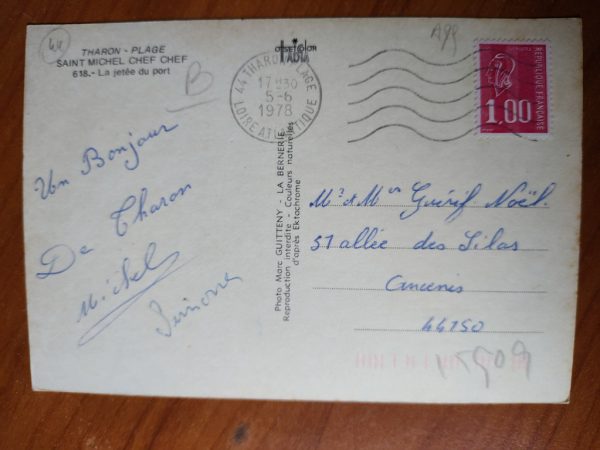 44
THARON - PLAGE
SAINT MICHEL CHEF CHEF
618.- La jetée du port
B
Un Bonjour
De Tharon
Michel
44 THARON-PLAGE
17H30
5-6
1978
LOIRE ATLANTIQUE
Photo Marc GUITTENY - LA BERNERIE
Reproduction interdite - Couleurs naturelles
d'après Ektachrome
REPUBLIQUE FRANÇAISE
1,00
Mr & Mme Guérif Noël
51 allée des Lilas
Ancenis
44150